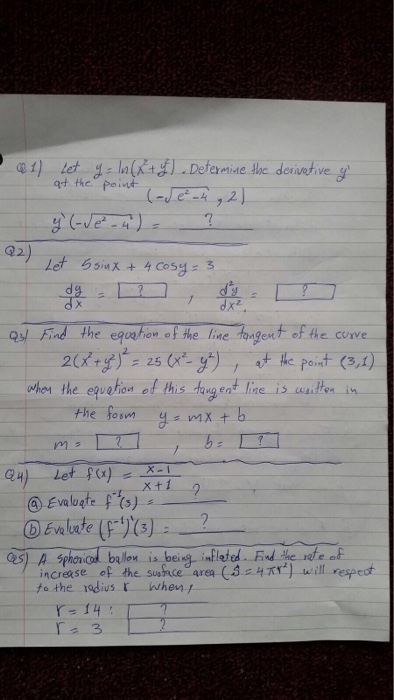 Q1) Let y = ln(x²+y²). Determine the derivative y'
at the point
(-√e²-4, 2)
y'(-√e²-4) = ?
Q2)
Let 5 sinx + 4 cosy = 3
dy/dx = ? , d²y/dx² = ?
Q3) Find the equation of the line tangent of the curve
2(x²+y²)² = 25 (x²-y²) , at the point (3,1)
when the equation of this tangent line is written in
the form y = mx + b
m = ? , b = ?
Q4) Let f(x) = x-1/x+1
ⓐ Evaluate f⁻¹(3) = ?
ⓑ Evaluate (f⁻¹)'(3) = ?
Q5) A spherical ballon is being inflated. Find the rate of
increase of the surface area (S = 4πr²) will respect
to the radius r when,
r = 14 : ?
r = 3 ?